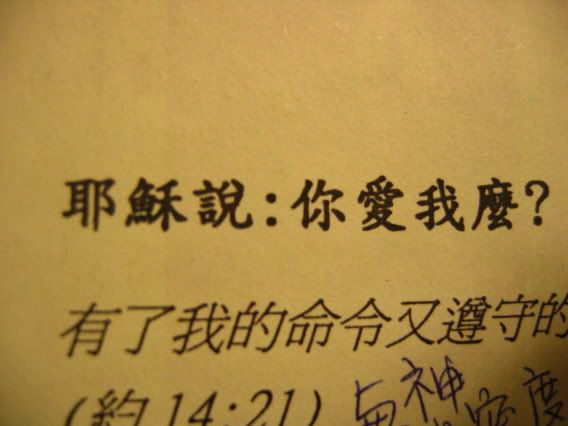 耶穌說:你愛我麼?
有了我的命令又遵守的
(約 14:21) 與神
度